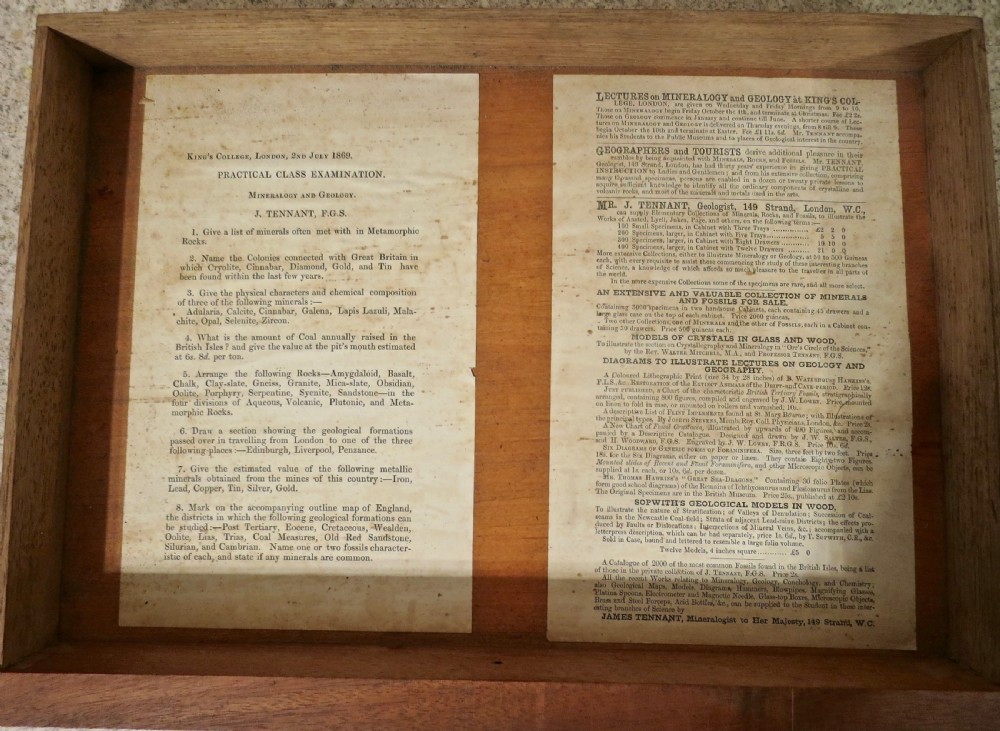 King's College, London, 2nd July 1869.
PRACTICAL CLASS EXAMINATION.
Mineralogy and Geology.
J. TENNANT, F.G.S.
1. Give a list of minerals often met with in Metamorphic
Rocks.
2. Name the Colonies connected with Great Britain in
which Cryolite, Cinnabar, Diamond, Gold, and Tin have
been found within the last few years.
3. Give the physical characters and chemical composition
of three of the following minerals:—
Adularia, Calcite, Cinnabar, Galena, Lapis Lazuli, Mala-
chite, Opal, Selenite, Zircon.
4. What is the amount of Coal annually raised in the
British Isles? and give the value at the pit's mouth estimated
at 6s. 8d. per ton.
5. Arrange the following Rocks—Amygdaloid, Basalt,
Chalk, Clay-slate, Gneiss, Granite, Mica-slate, Obsidian,
Oolite, Porphyry, Serpentine, Syenite, Sandstone—in the
four divisions of Aqueous, Volcanic, Plutonic, and Meta-
morphic Rocks.
6. Draw a section showing the geological formations
passed over in travelling from London to one of the three
following places:—Edinburgh, Liverpool, Penzance.
7. Give the estimated value of the following metallic
minerals obtained from the mines of this country:—Iron,
Lead, Copper, Tin, Silver, Gold.
8. Mark on the accompanying outline map of England,
the districts in which the following geological formations can
be studied:—Post Tertiary, Eocene, Cretaceous, Wealden,
Oolite, Lias, Trias, Coal Measures, Old Red Sandstone,
Silurian, and Cambrian. Name one or two fossils character-
istic of each, and state if any minerals are common.
LECTURES on MINERALOGY and GEOLOGY at KING'S COL-
LEGE, LONDON, are given on Wednesday and Friday Mornings from 9 to 10.
Those on Mineralogy begin Friday October 4th, and terminate at Christmas. Fee £2 2s.
Those on Geology commence in January and continue till June. A shorter course of Lec-
tures on Mineralogy and Geology is delivered on Thursday evenings, from 8 till 9. These
begin October 10th and terminate at Easter. Fee £1 11s. 6d. Mr. Tennant accompa-
nies his Students to the Public Museums and to places of Geological interest in the country.
GEOGRAPHERS and TOURISTS derive additional pleasure in their
rambles by being acquainted with Minerals, Rocks, and Fossils. Mr. TENNANT,
Geologist, 149 Strand, London, has had thirty years' experience in giving PRACTICAL
INSTRUCTION to Ladies and Gentlemen; and from his extensive collection, comprising
many thousand specimens, persons are enabled in a dozen or twenty private lessons to
acquire sufficient knowledge to identify all the ordinary components of crystalline and
volcanic rocks, and most of the minerals and metals used in the arts.
MR. J. TENNANT, Geologist, 149 Strand, London, W.C.,
can supply Elementary Collections of Minerals, Rocks, and Fossils, to illustrate the
Works of Ansted, Lyell, Jukes, Page, and others, on the following terms:—
100 Small Specimens, in Cabinet with Three Trays ............ £2 2 0
200 Specimens, larger, in Cabinet with Five Trays ............ 5 5 0
300 Specimens, larger, in Cabinet with Eight Drawers ............ 10 10 0
400 Specimens, larger, in Cabinet with Twelve Drawers ............ 21 0 0
More extensive Collections, either to illustrate Mineralogy or Geology, at 50 to 500 Guineas
each, with every requisite to assist those commencing the study of these interesting branches
of Science, a knowledge of which affords so much pleasure to the traveller in all parts of
the world.
In the more expensive Collections some of the specimens are rare, and all more select.
AN EXTENSIVE AND VALUABLE COLLECTION OF MINERALS
AND FOSSILS FOR SALE,
Containing 3000 specimens in two handsome Cabinets, each containing 45 drawers and a
large glass case on the top of each cabinet. Price 2000 guineas.
Two other Collections, one of Minerals and the other of Fossils, each in a Cabinet con-
taining 30 drawers. Price 500 guineas each.
MODELS OF CRYSTALS IN GLASS AND WOOD,
To illustrate the section on Crystallography and Mineralogy in "Orr's Circle of the Sciences,"
by the Rev. Walter Mitchell, M.A., and Professor Tennant, F.G.S.
DIAGRAMS TO ILLUSTRATE LECTURES ON GEOLOGY AND
GEOGRAPHY.
A Coloured Lithographic Print (size 34 by 28 inches) of B. Waterhouse Hawkins's,
F.L.S., &c. Restoration of the Extinct Animals
Just published, a Chart of the characteristic British Tertiary Fossils, stratigraphically
arranged, containing 800 figures, compiled and engraved by J. W. Lowry. Price, mounted
on linen to fold in case, or mounted on rollers and varnished, 10s.
A descriptive List of Flint Implements found at St. Mary Bourne; with Illustrations of
the principal types. By Joseph Stevens, Memb. Roy. Coll. Physicians, London, &c.
A New Chart of Fossil Crustacea, illustrated by upwards of 490 Figures, and accom-
panied by a Descriptive Catalogue. Designed and drawn by J. W. Salter, F.G.S.,
and H. Woodward, F.G.S. Engraved by J. W. Lowry, F.R.G.S. Price 10s. 6d.
Six Diagrams of Generic forms of Foraminifera. Size, three feet by two feet. Price
18s. for the Six Diagrams, either on paper or linen. They contain Eighty-two Figures.
Mounted slides of Recent and Fossil Foraminifera, and other Microscopic Objects, can be
supplied at 1s each, or 10s. 6d. per dozen.
Mr. Thomas Hawkins's "Great Sea-Dragons." Containing 30 folio Plates (which
form good school diagrams) of the Remains of Ichthyosaurus and Plesiosaurus from the Lias.
The Original Specimens are in the British Museum. Price 25s., published at £2 10s.
SOPWITH'S GEOLOGICAL MODELS IN WOOD,
To illustrate the nature of Stratification; of Valleys of Denudation; Succession of Coal-
seams in the Newcastle Coal-field; Strata of adjacent Lead-mine Districts; the effects pro-
duced by Faults or Dislocations; Intersections of Mineral Veins, &c.; accompanied with a
letterpress description, which can be had separately, price 1s. 6d., by T. Sopwith, C.E., &c.
Sold in Case, bound and lettered to resemble a large folio volume.
Twelve Models, 4 inches square............ £5 0
A Catalogue of 2000 of the most common Fossils found in the British Isles, being a list
of those in the private collection of J. Tennant, F.G.S. Price 2s.
All the recent Works relating to Mineralogy, Geology, Conchology, and Chemistry;
also Geological Maps, Models, Diagrams, Hammers, Blowpipes, Magnifying Glasses,
Platina Spoons, Electrometer and Magnetic Needle, Glass-top Boxes, Microscopic Objects,
Brass and Steel Forceps, Acid Bottles, &c., can be supplied to the Student in these inter-
esting branches of Science by
JAMES TENNANT, Mineralogist to Her Majesty, 149 Strand, W.C.